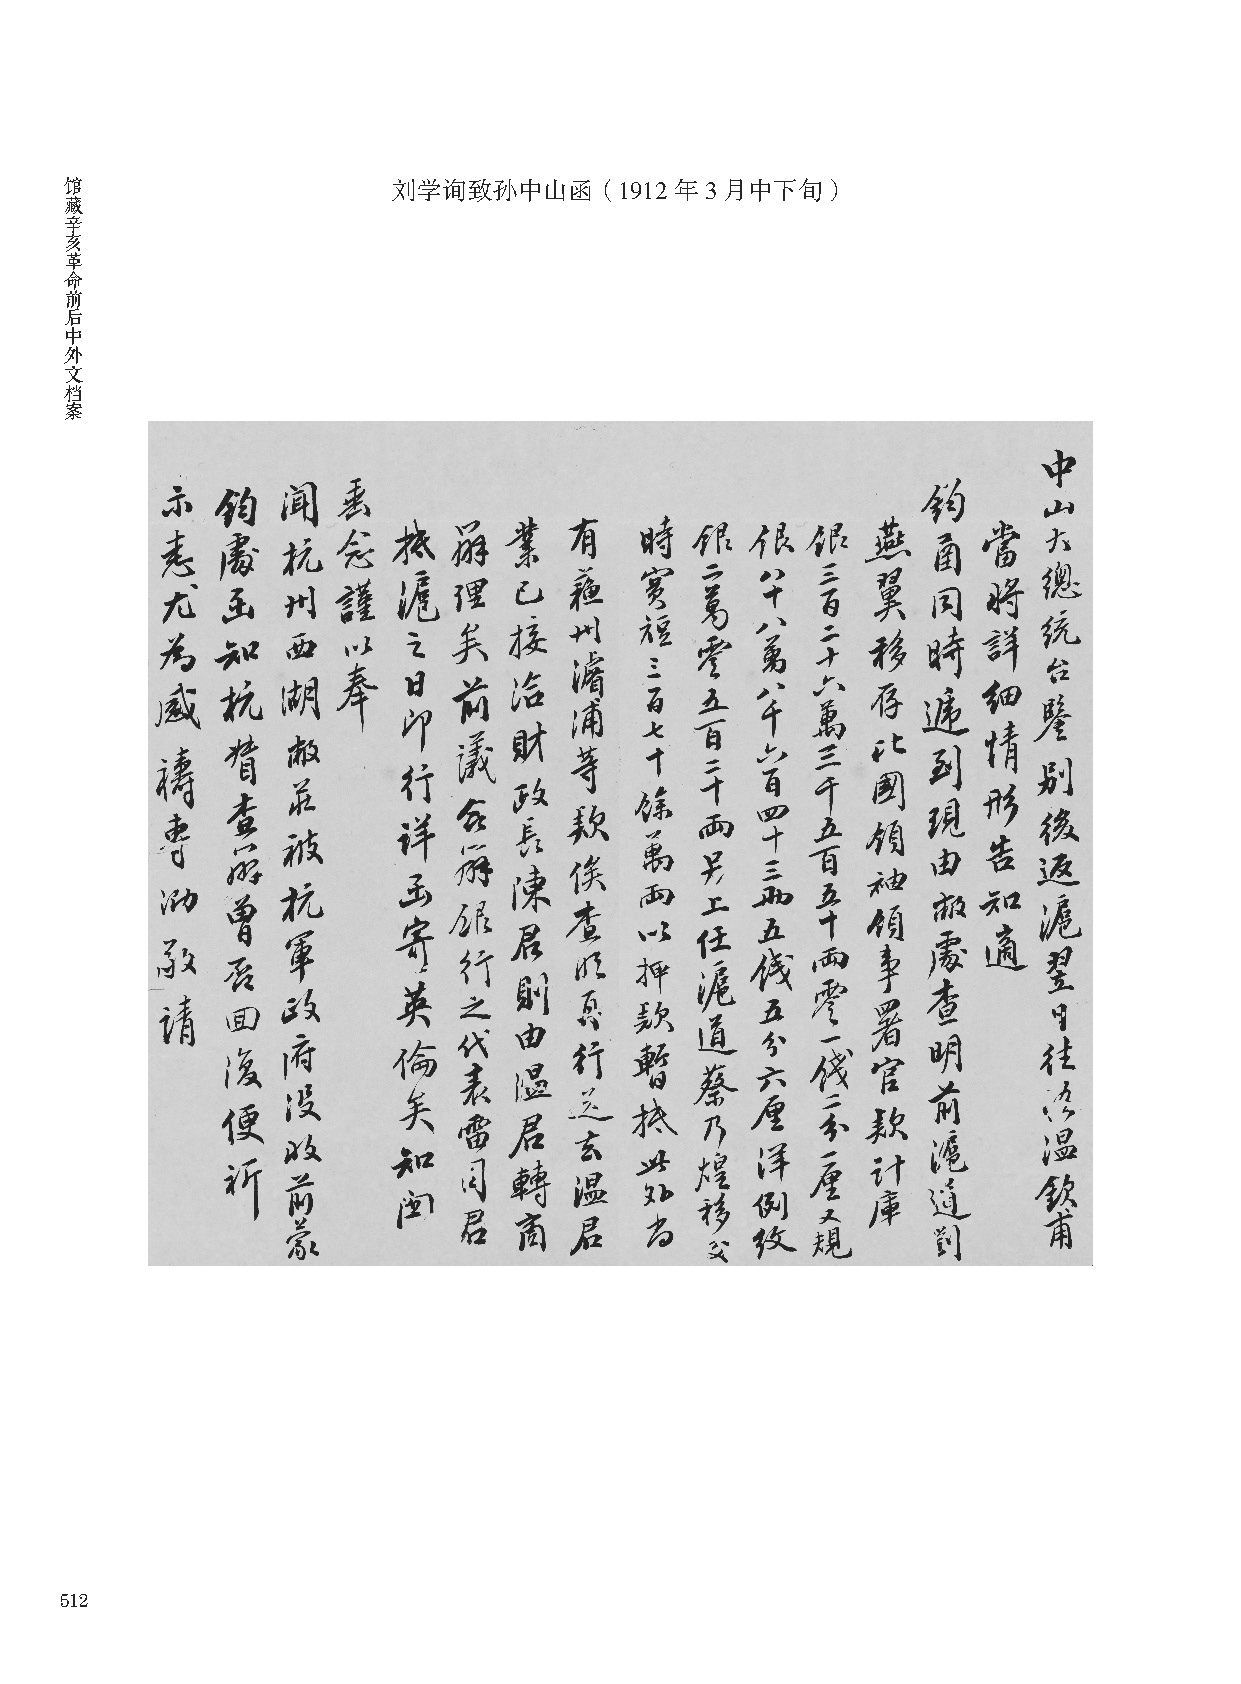 馆藏辛亥革命前后中外文档案
刘学询致孙中山函（1912 年 3 月中下旬）
中山大總统台鑒别後返滬翌日往访温欽甫
當将詳細情形告知適
鈞函同時遞到現由敝處查明前滬道劉
燕翼移存比國領袖領事署官款計庫
銀三百二十六萬三千五百五十兩零一錢二分一厘又規
銀八十八萬八千六百四十三兩五錢五分六厘洋例纹
銀二萬零五百二十兩另上任滬道蔡乃煌移交
時實短三百七十餘萬兩以押款暫抵此外尚
有蘇州濬浦等款俟查明另行送去温君
業已接洽財政長陳君則由温君轉商
辦理矣前議合辦銀行之代表雷同君
抵滬之日即行详函寄英倫矣知関
垂念謹以奉
聞杭州西湖敝莊被杭軍政府没收前蒙
鈞處函知杭督查辦曾否回復便祈
示悉尤为感禱専泐敬請
512